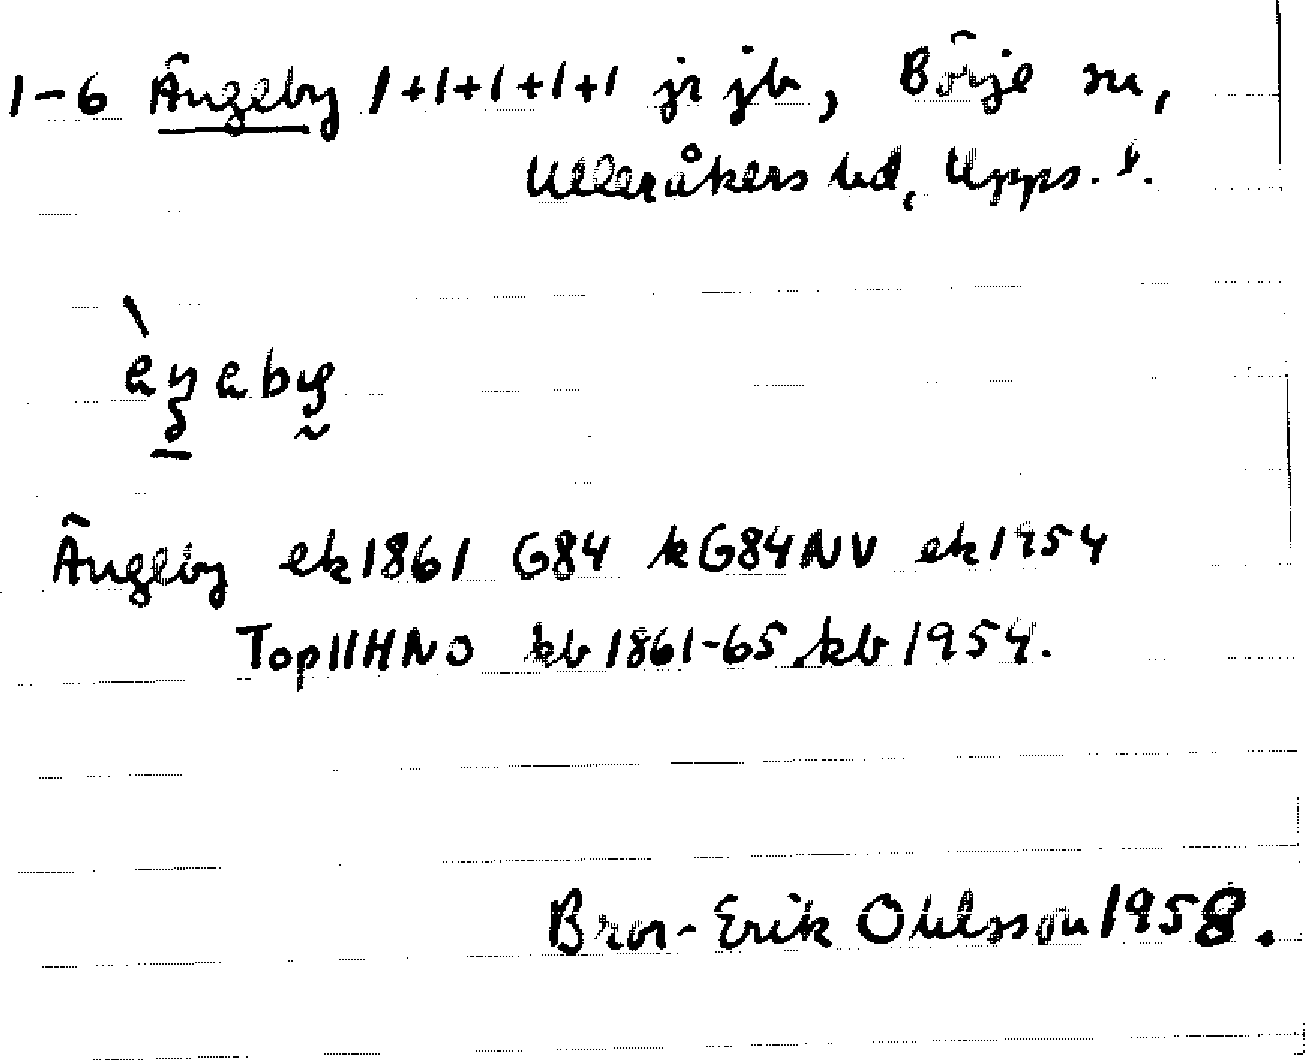 1-6 Ängeby 1+1+1+1+1 jr jb, Börje sn,
Ulleråkers hd, Upps. l.
Ängeby ek1861 G84 kG84NV ek1954
Top11HNO kb 1861-65, kb 1954.
Bror-Erik Ohlsson 1958.